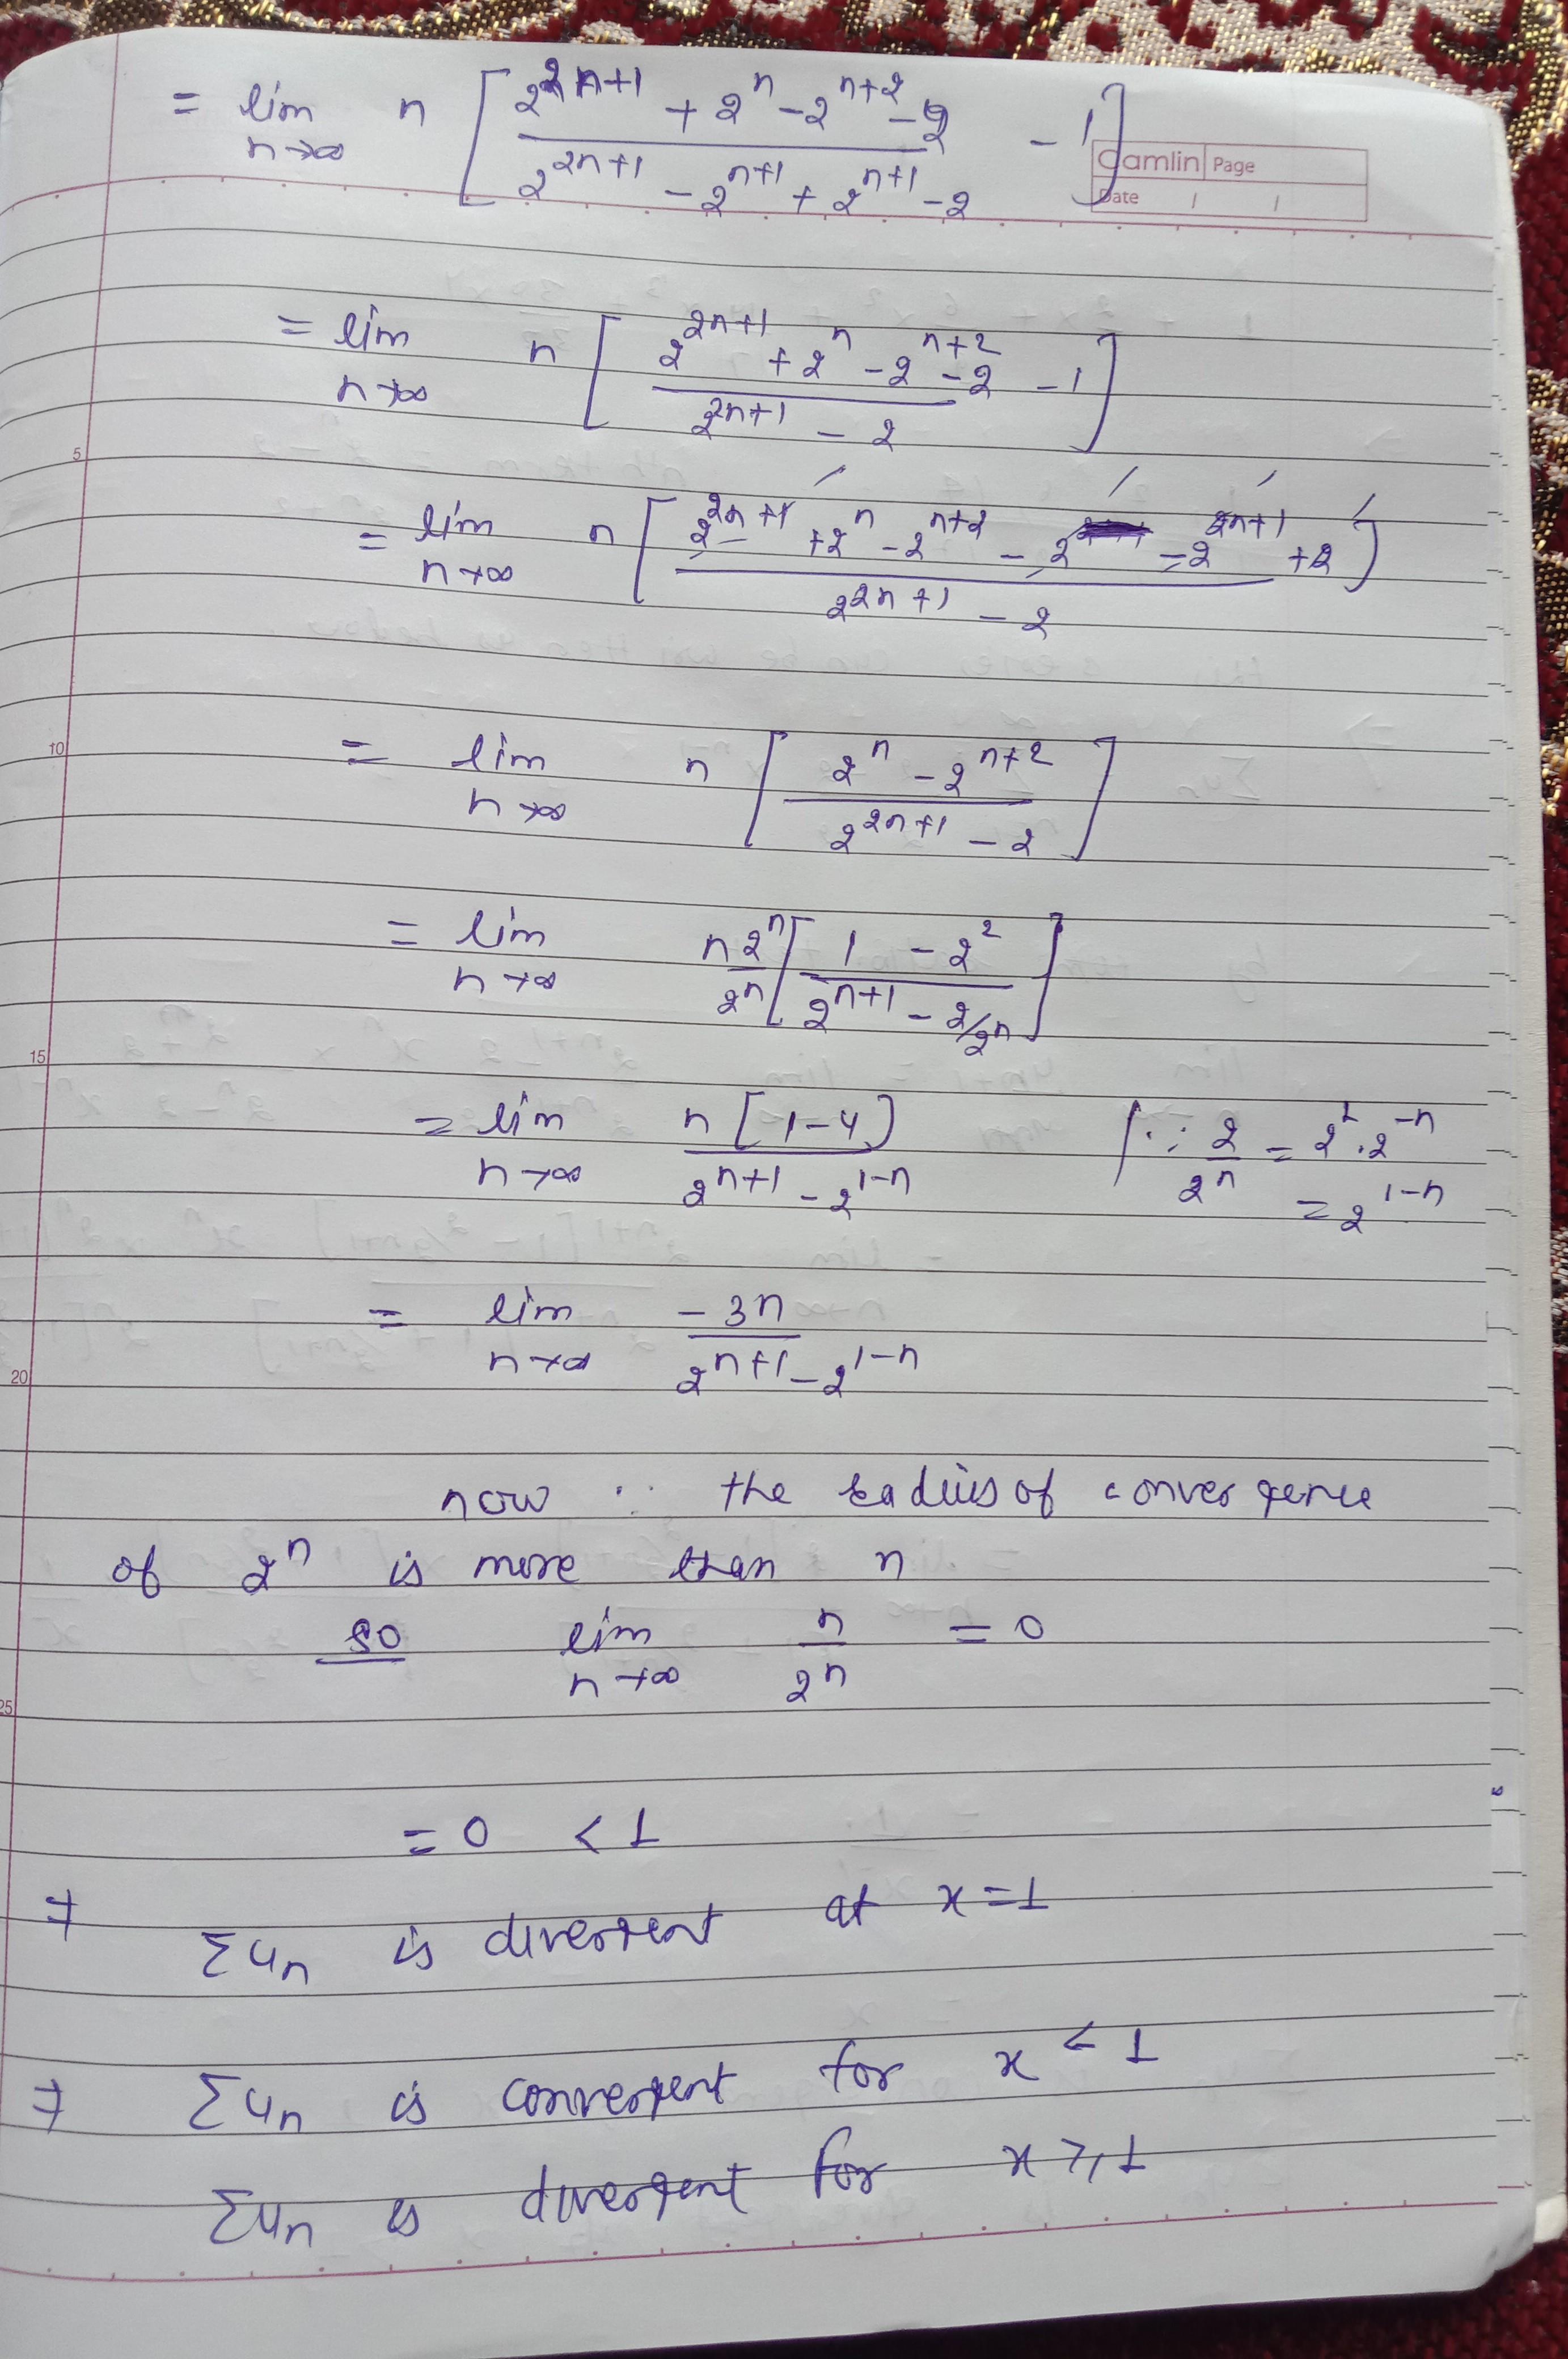 = lim n→∞ n [ (2^{2n+1} + 2^n - 2^{n+2} - 2) / (2^{2n+1} - 2^{n+1} + 2^{n+1} - 2) - 1 ]
Camlin Page
Date / /
= lim n→∞ n [ (2^{2n+1} + 2^n - 2^{n+2} - 2) / (2^{2n+1} - 2) - 1 ]
5
= lim n→∞ n [ (2^{2n+1} + 2^n - 2^{n+2} - 2 - 2^{2n+1} + 2) / (2^{2n+1} - 2) ]
10
= lim n→∞ n [ (2^n - 2^{n+2}) / (2^{2n+1} - 2) ]
= lim n→∞ n2^n / 2^n [ (1 - 2^2) / (2^{n+1} - 2/2^n) ]
15
= lim n→∞ n[1-4] / (2^{n+1} - 2^{1-n}) [∵ 2/2^n = 2^1 . 2^{-n}
= 2^{1-n}
= lim n→∞ -3n / (2^{n+1} - 2^{1-n})
20
now ∵ the radius of convergence
of 2^n is more than n
so lim n→∞ n/2^n = 0
25
= 0 < 1
⇒ Σun is divergent at x = 1
⇒ Σun is convergent for x < 1
Σun is divergent for x ≥ 1